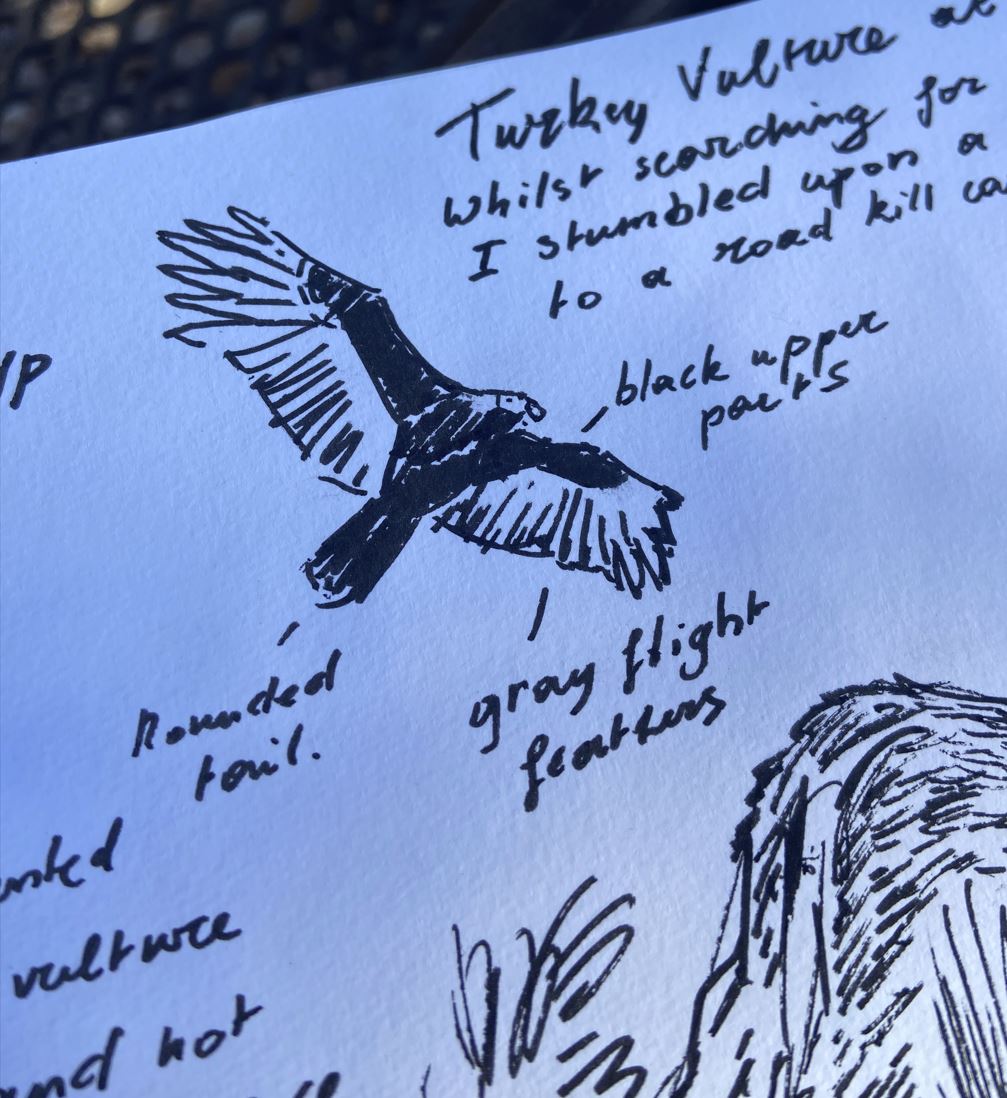 Turkey Vulture at
whilst searching for
I stumbled upon a
to a road kill ca
up
black upper
parts
gray flight
feathers
Rounded
tail.
vulture
and not